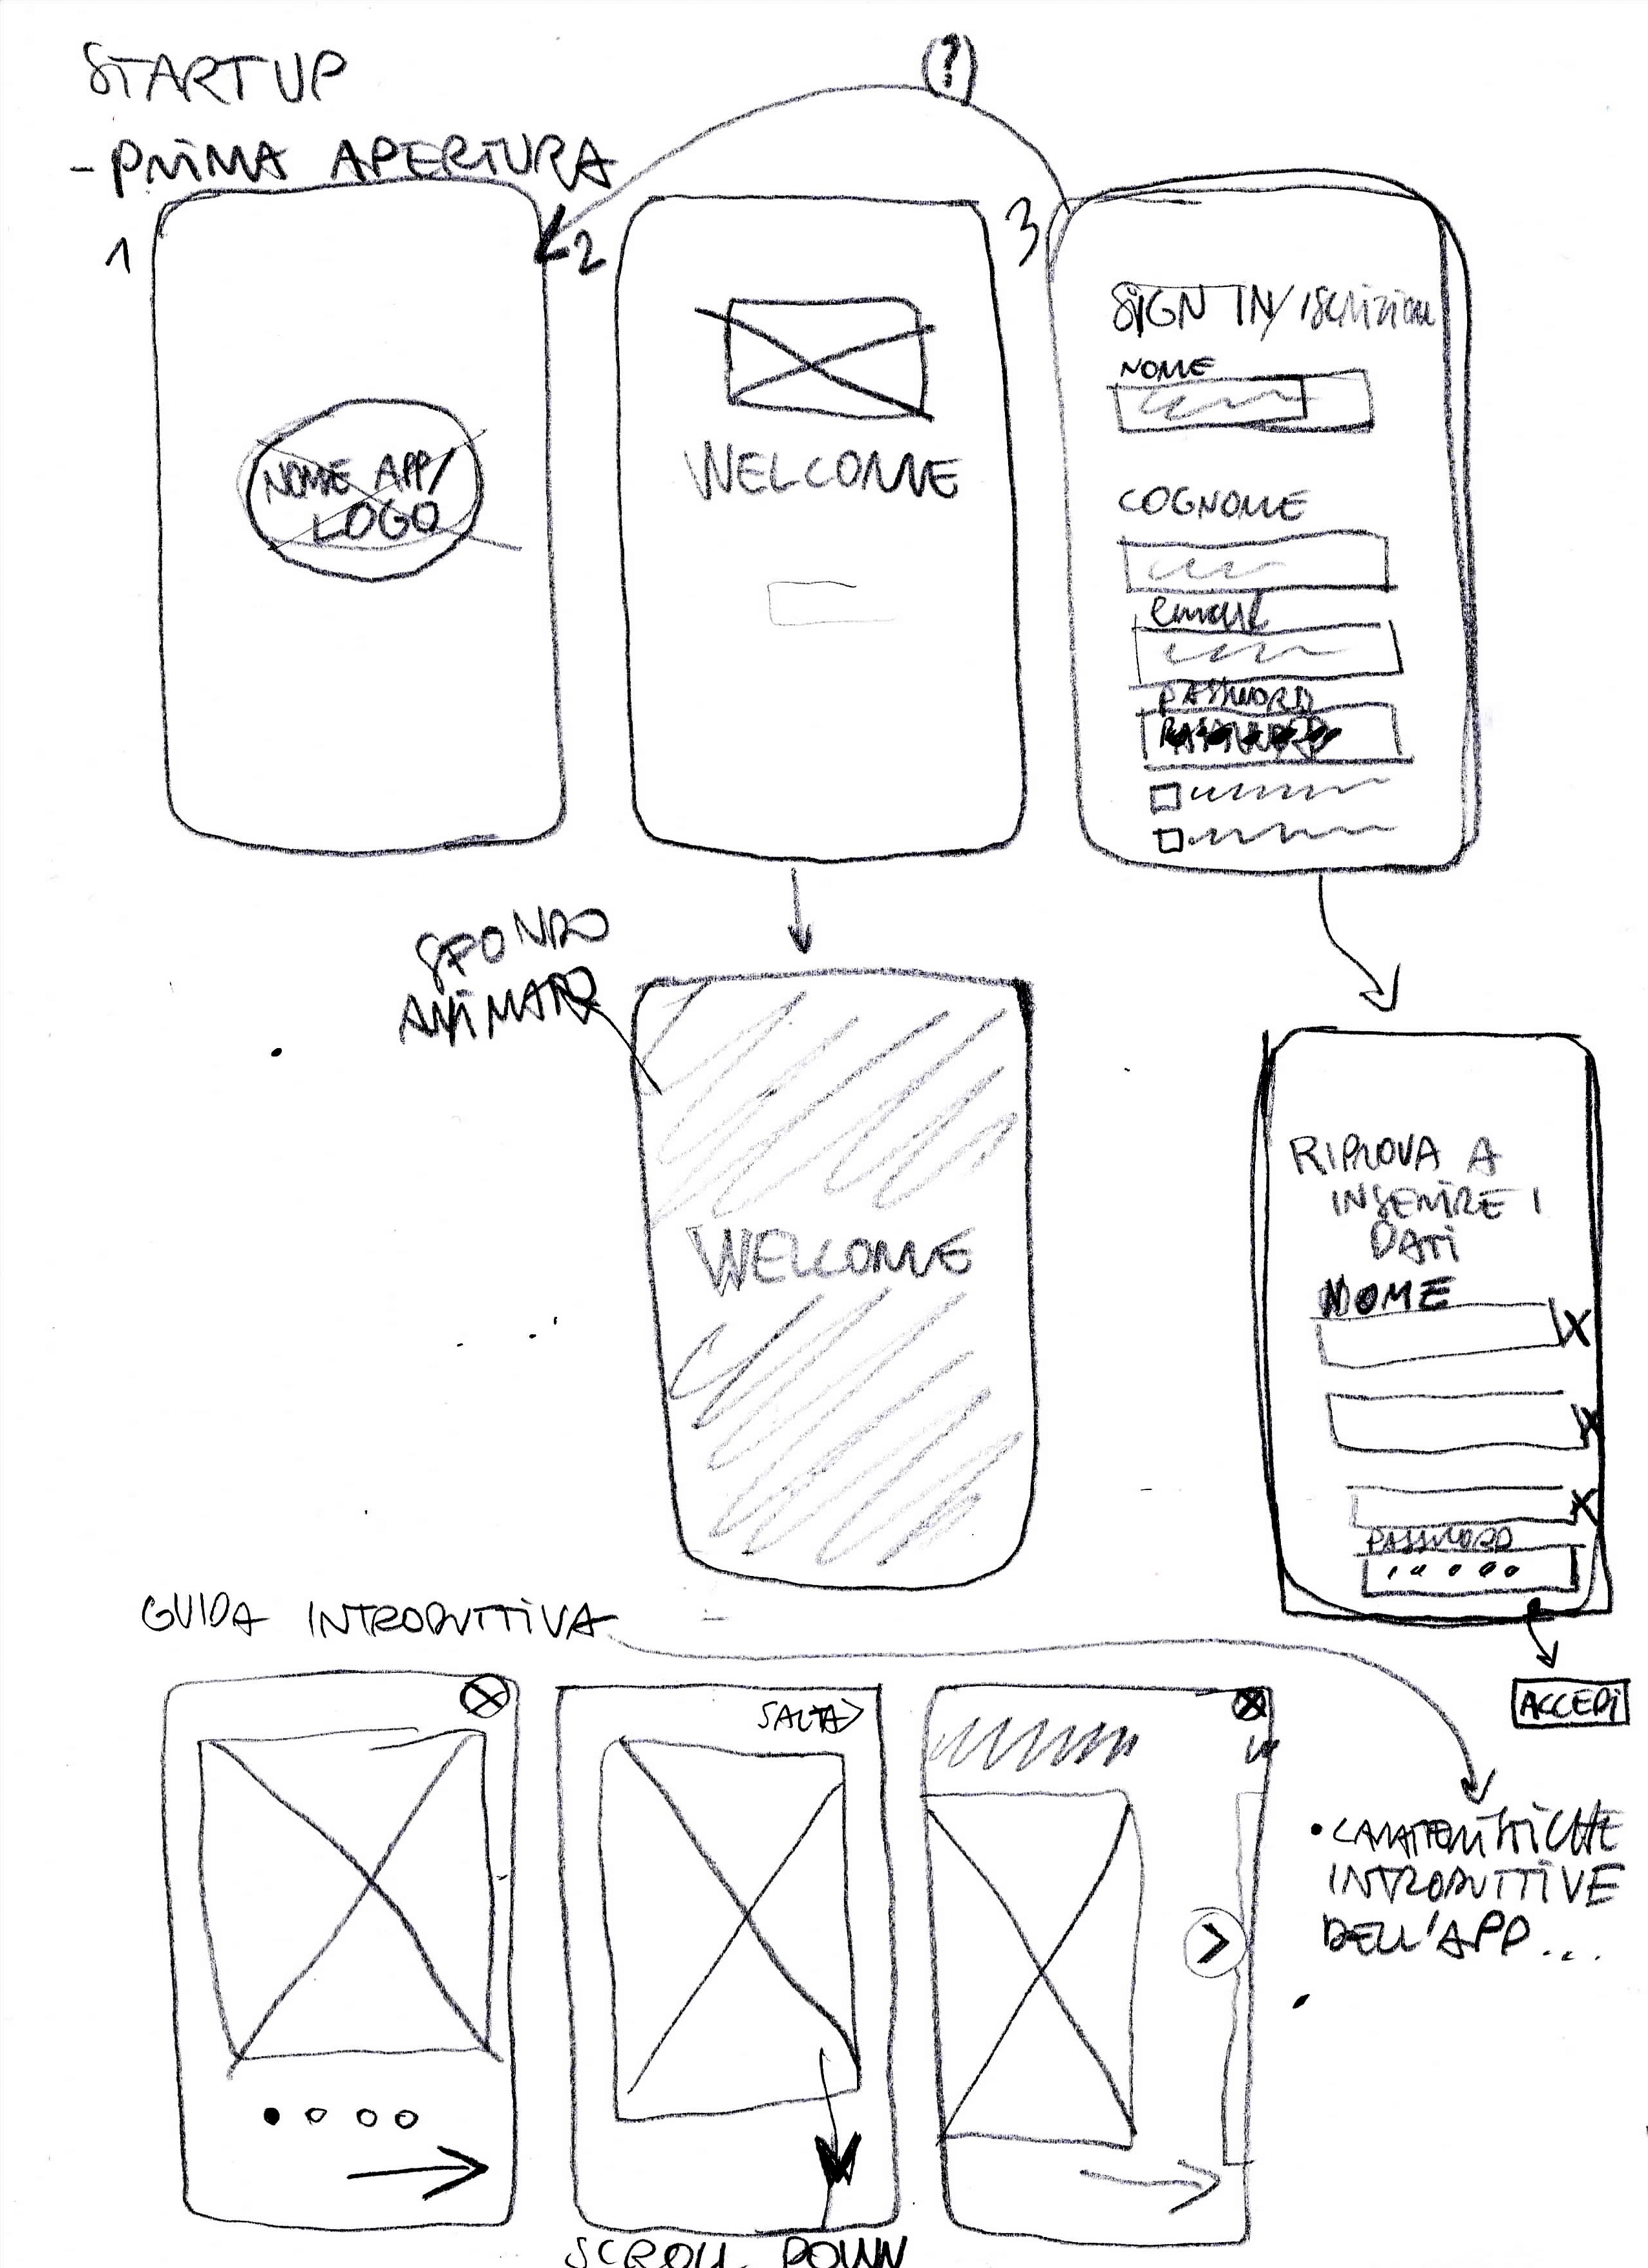 STARTUP
- PRIMA APERTURA
(?)
1
2
3
NOME APP/
LOGO
WELCOME
SIGN IN/ iscrizione
NOME
COGNOME
email
PASSWORD
SFONDO
ANIMATO
WELCOME
RIPROVA A
INSERIRE I
DATI
NOME
X
X
X
PASSWORD
ACCEDI
GUIDA INTRODUTTIVA
SALTA>
SCROLL DOWN
• CARATTERISTICHE
INTRODUTTIVE
DELL'APP...